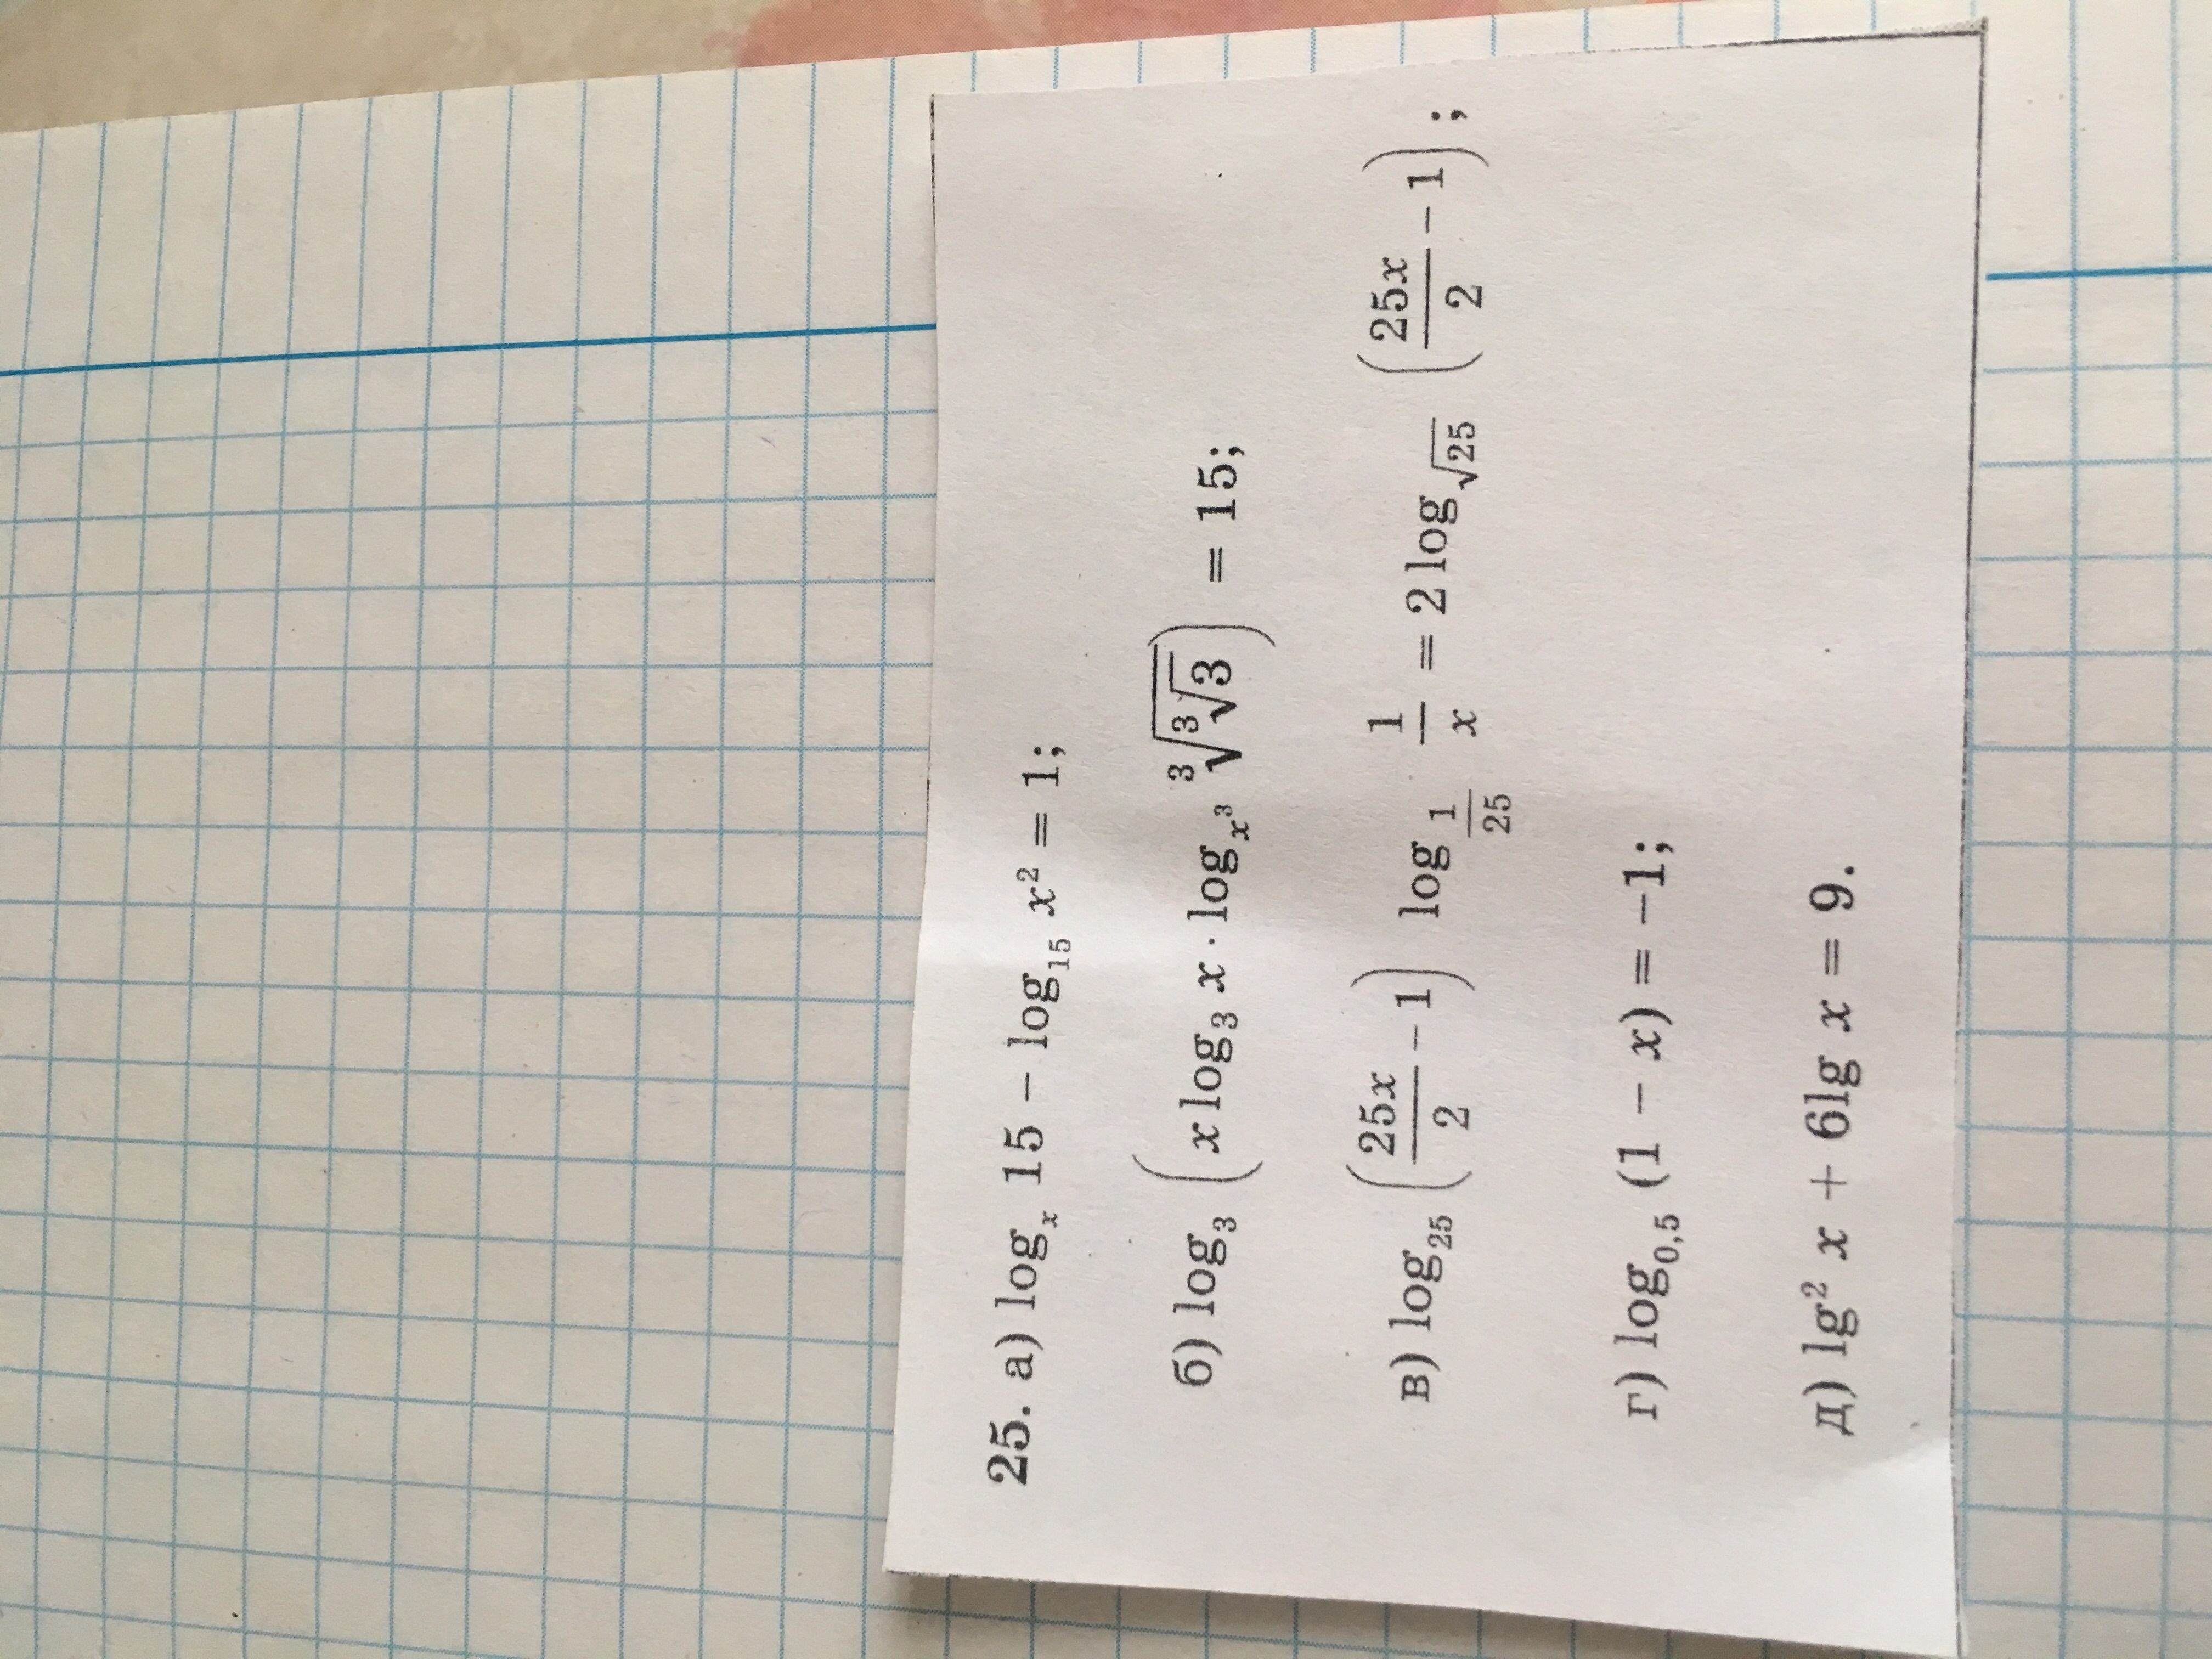 25. а) log_x 15 − log_15 x² = 1;
б) log_3 (x log_3 x · log_{x³} ∛(∛3)) = 15;
в) log_25 (25x/2 − 1) log_{1/25} 1/x = 2 log_{√25} (25x/2 − 1);
г) log_{0,5} (1 − x) = −1;
д) lg² x + 6lg x = 9.